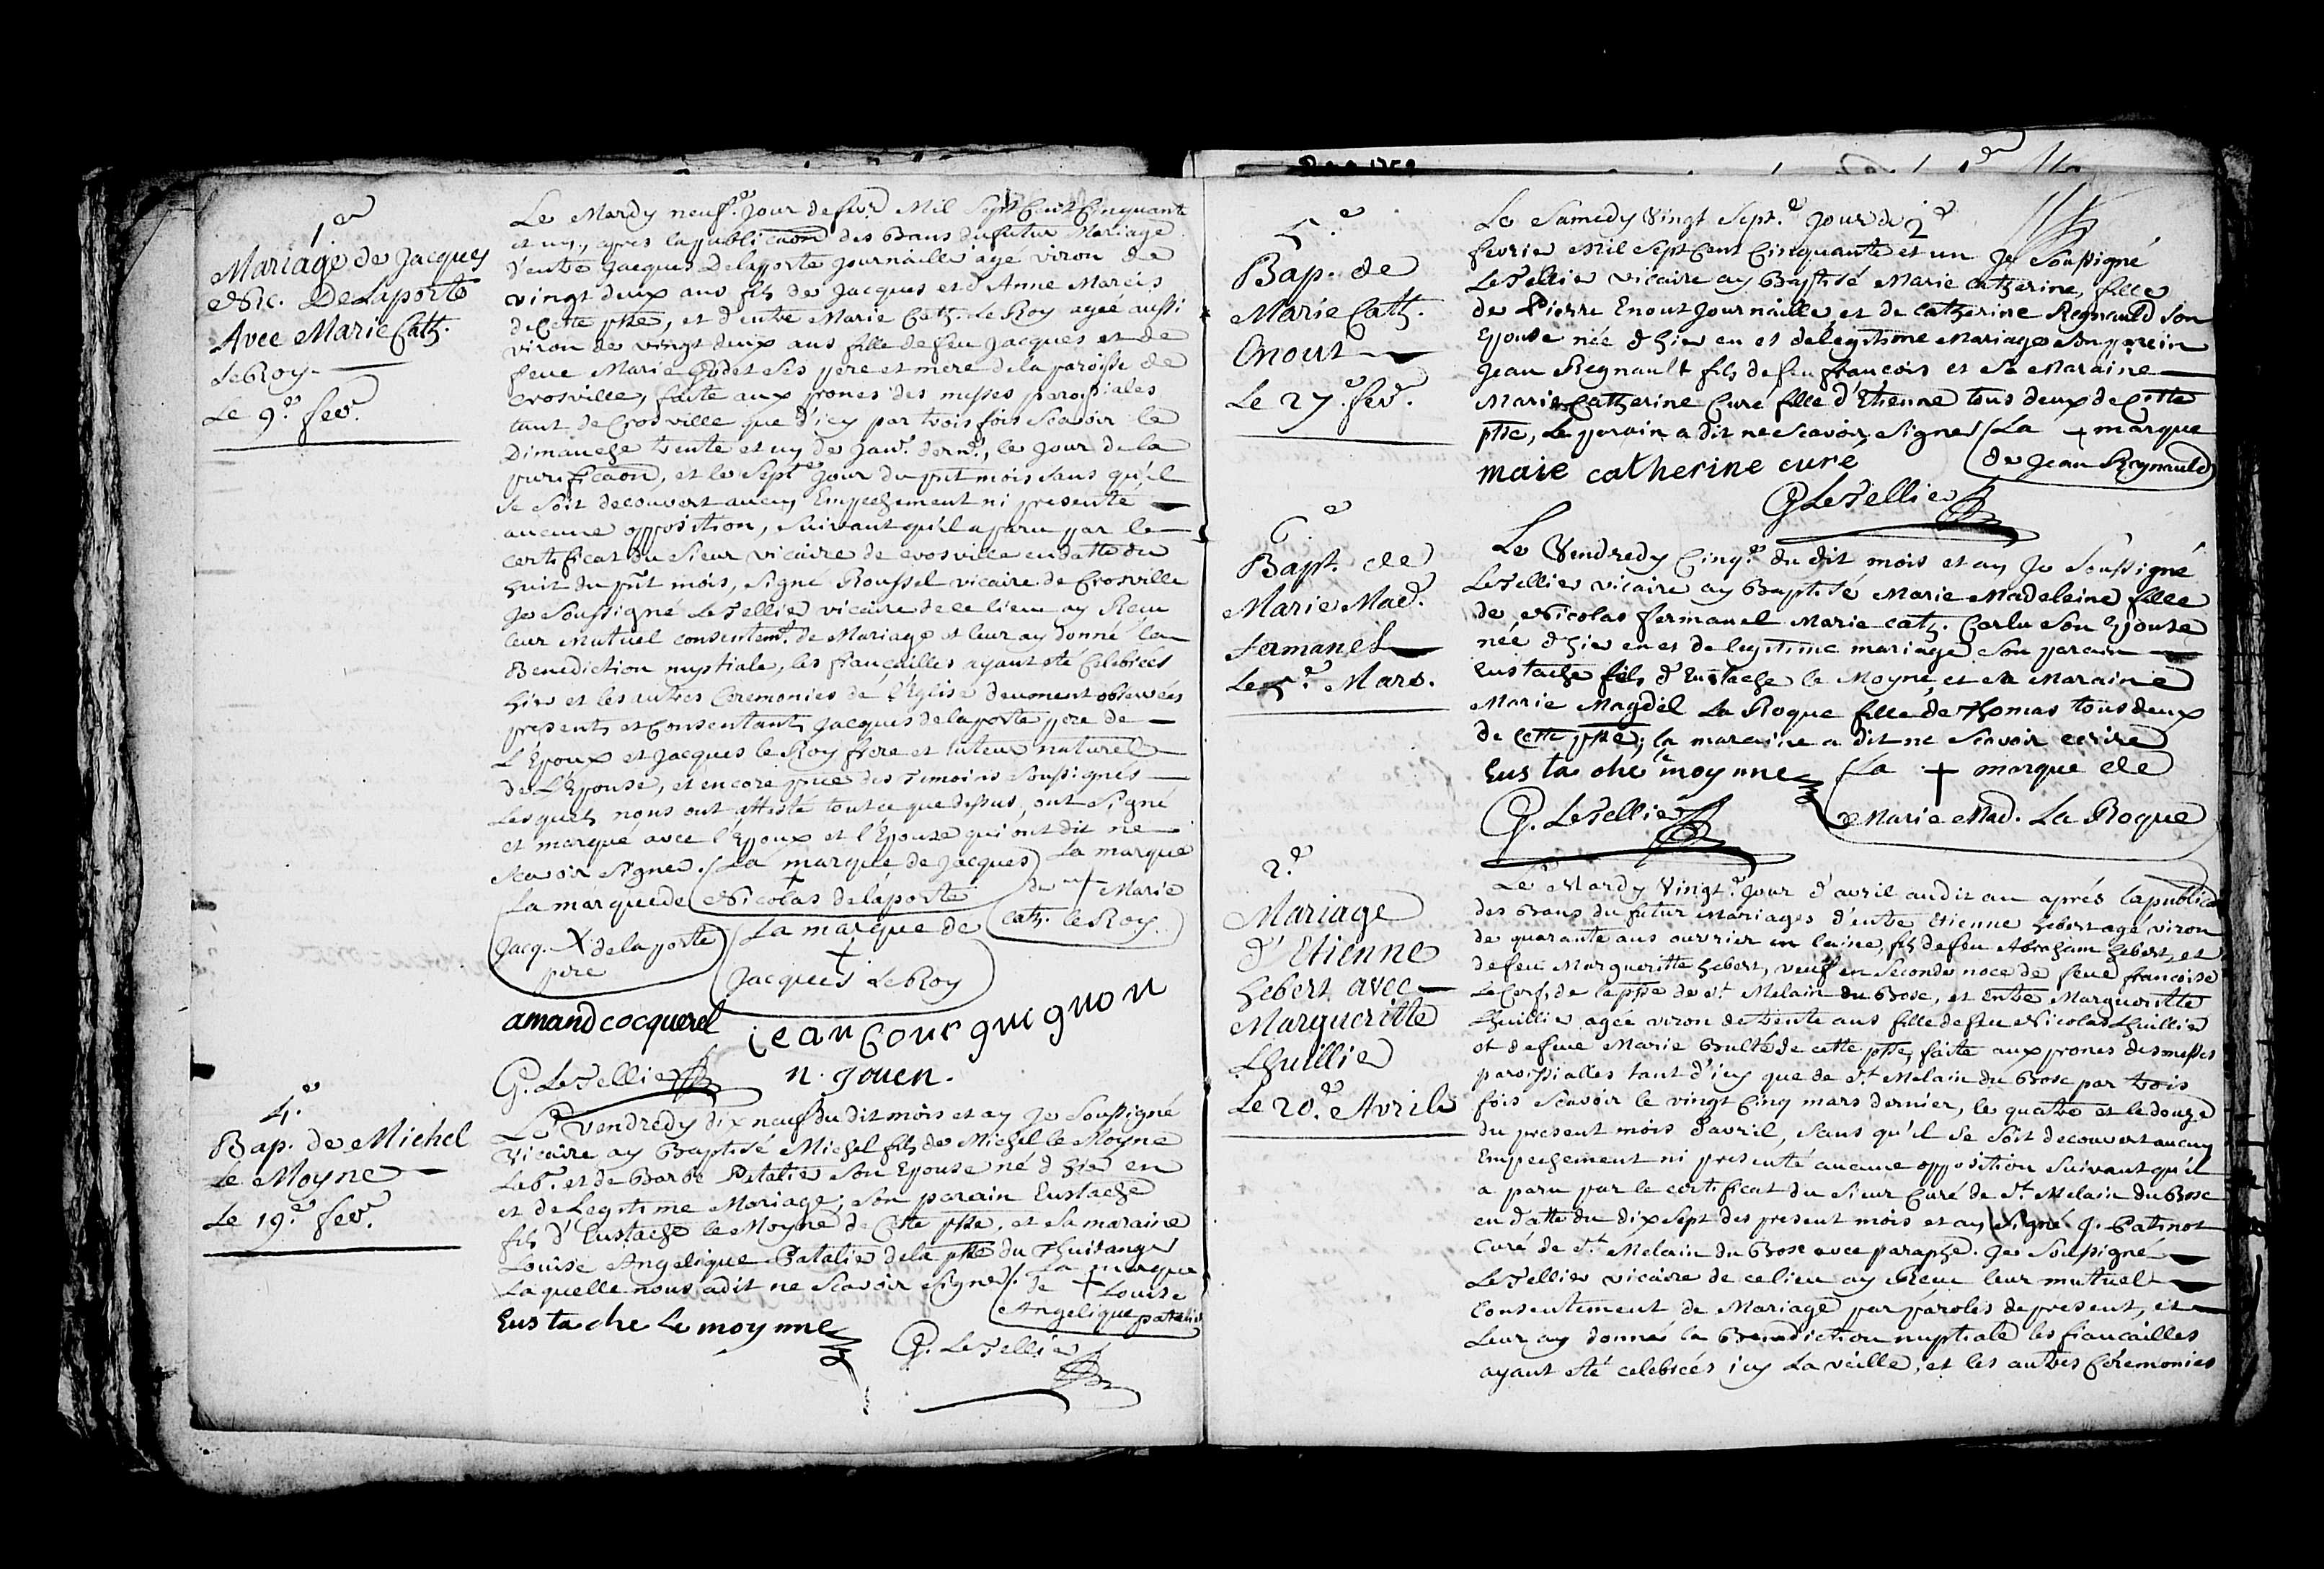 1.er
Mariage de Jacques
Nic. Delaporte
Avec Marie Cath.
Le Roy
Le 9.e fev.r
Le Mardy neuf.e jour de fevr Mil Sept Cent Cinquante
et un, apres la publicaon des Bans du futur Mariage
d'entre Jacques Delaporte journallier agé viron de
vingt deux ans fils de Jacques et d'Anne Mareis
de Cette psse, et d'entre Marie Cath. Le Roy agée aussi
viron de vingt deux ans fille de feu Jacques et de
feue Marie Godet Ses pere et mere de la paroisse de
Crosville, faite aux prones des messes paroissiales
tant de Crosville que d'icy par trois fois Scavoir le
Dimanche trente et un de Janv. dern.r, le Jour de la
purificaon, et le Sept.e Jour du pnt mois sans qu'il
se soit decouvert aucun Empechement ni presenté
aucune opposition, Suivant qu'il a paru par le
certificat du Sieur vicaire de Crosville en datte du
huit du pnt mois, Signé Roussel vicaire de Crosville
Je Soussigné LeTellier vicaire de ce lieu ay Reçu
leur Mutuel consentem.t de Mariage et leur ay donné la
Benediction nuptiale, les fiançailles ayant eté Celebrées
hier et les autres Ceremonies de l'Eglise deument observées
presents et Consentants Jacques delaporte pere de
L'Epoux et Jacques le Roy frere et tuteur naturel
de L'Epouse, et encore pnce des Temoins Soussignés
Lesquels nous ont attesté tout ce que dessus, ont Signé
et marqué avec l'Epoux et l'Epouse qui ont dit ne
scavoir signer. La marque de Jacques
+
Nicolas delaporte
La marque
de + Marie
Cath. le Roy
La marque de
Jacq. X delaporte
pere
La marque de
+
Jacques LeRoy
amand cocquerel
jean Cour guignon
G. LeTellier
n. Jouen.
4.e
Bap. de Michel
Le Moyne
Le 19.e fev.r
Le Vendredy dix neuf du dit mois et an Je Soussigné
Vicaire ay Baptisé Michel fils de Michel le Moyne
Lab.r et de Barbe Patalier Son Epouse né d hier en
et de Legitime Mariage, Son parain Eustache
fils d'Eustache le Moyne de Cette psse, et Sa maraine
Louise Angelique Patalier de la psse du Thuitanger
Laquelle nous a dit ne Scavoir Signer. La marque
de + Louise
Angelique patalier
Eustache Le moynne
G. LeTellier
5.e
Bap. de
Marie Cath.
Enout
Le 27.e fev.r
Le Samedy Vingt Sept.e Jour de
2.e
fevrier Mil Sept Cent Cinquante et un Je Soussigné
LeTellier vicaire ay Baptisé Marie Catherine, fille
de Pierre Enout Journaillier et de Catherine Regnauld Son
Epouse née d hier en et de legitime Mariage Son parein
Jean Regnault fils de feu francois et Sa Maraine
Marie Catherine Cure fille d'Etienne tous deux de Cette
psse, Le parain a dit ne Scavoir Signer La + marque
de Jean Regnauld
maie catherine curé
G. LeTellier
6.e
Bapt. de
Marie Mad.
fermanel
Le 5.e Mars.
Le Vendredy Cinq.e du dit mois et an Je Soussigné
LeTellier vicaire ay Baptisé Marie Madeleine fille
de Nicolas fermanel Marie Cath. Carlu Son Epouse
née d hier en et de legitime mariage Son parain
Eustache fils d'Eustache le Moyne, et Sa Maraine
Marie Magdel La Roque fille de Thomas tous deux
de Cette psse; la maraine a dit ne Scavoir ecrire
Eustache le moynne
La + marque de
Marie Mad. La Roque
G. LeTellier
2.e
Mariage
d'Etienne
hebert avec
Margueritte
Lhuillier
Le 20.e Avril
Le Mardy Vingt.e Jour d'avril audit an aprés la public
des Bans du futur Mariages d'entre Etienne hebert agé viron
de quarante ans ouvrier en laine, fils de feu Abraham hebert, et
de feu Margueritte hebert, veuf en Seconde noce de feue françoise
Le Cerf, de la psse de St Melain du Bosc, et Entre Margueritte
Lhuillier agée viron de trente ans fille de feu Nicolas Lhuillier
et de feue Marie Bulté de cette psse, faite aux prones des messes
paroissialles tant d'icy que de St Melain du Bosc par trois
fois Scavoir le vingt Cinq mars dernier, le quatre et le douze
du present mois d'avril, Sans qu'il se Soit decouvert aucun
Empechement ni presenté aucune opposition Suivant qu'il
a paru par le certificat du Sieur Curé de St Melain du Bosc
en datte du dix Sept des present mois et an, signé J. Patinot
Curé de St Melain du Bosc avec paraphe. Je Soussigné
LeTellier vicaire de ce lieu ay Reçu leur mutuel
Consentement de Mariage par paroles de present, et
Leur ay donné la Benediction nuptiale les fiançailles
ayant eté celebrées icy La veille, et les autres Ceremonies